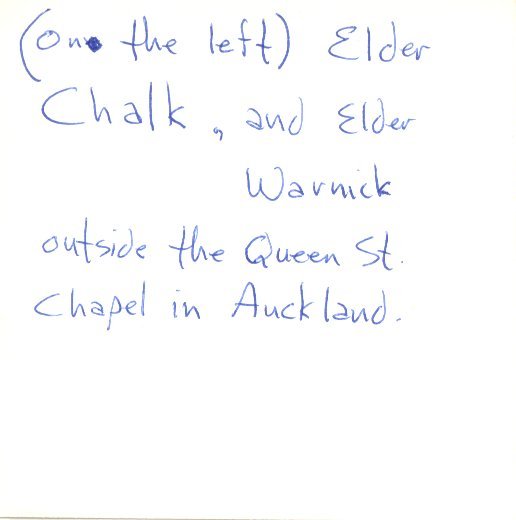 (on the left) Elder
Chalk, and Elder
Warnick
outside the Queen St.
Chapel in Auckland.